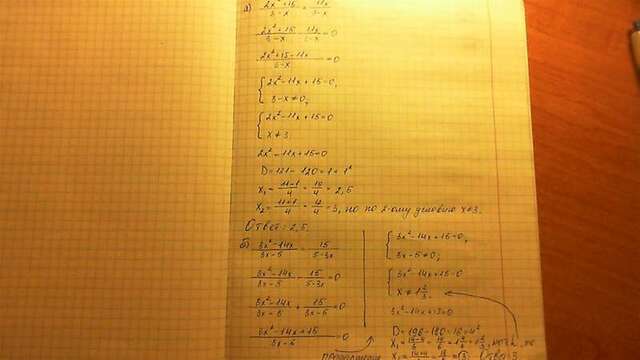 а) (2x²+15)/(3-x) = 11x/(3-x)
(2x²+15)/(3-x) - 11x/(3-x) = 0
(2x²+15-11x)/(3-x) = 0
{ 2x²-11x+15=0,
3-x≠0,
{ 2x²-11x+15=0
x≠3
2x²-11x+15=0
D=121-120=1=1²
x₁ = (11-1)/4 = 10/4 = 2,5
x₂ = (11+1)/4 = 12/4 = 3, но по 2-ому условию x≠3.
Ответ: 2,5.
б) (3x²-14x)/(3x-5) = 15/(5-3x)
(3x²-14x)/(3x-5) - 15/(5-3x) = 0
(3x²-14x)/(3x-5) + 15/(3x-5) = 0
(3x²-14x+15)/(3x-5) = 0
{ 3x²-14x+15=0,
3x-5≠0,
{ 3x²-14x+15=0
x≠1 2/3.
3x²-14x+15=0
D=196-180=16=4²